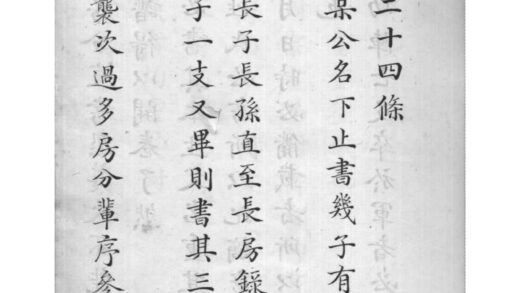 二十四條
某公名下止書幾子有
長子長孫直至長房錄
子一支又畢則書其三
襲次過多房分輩序參